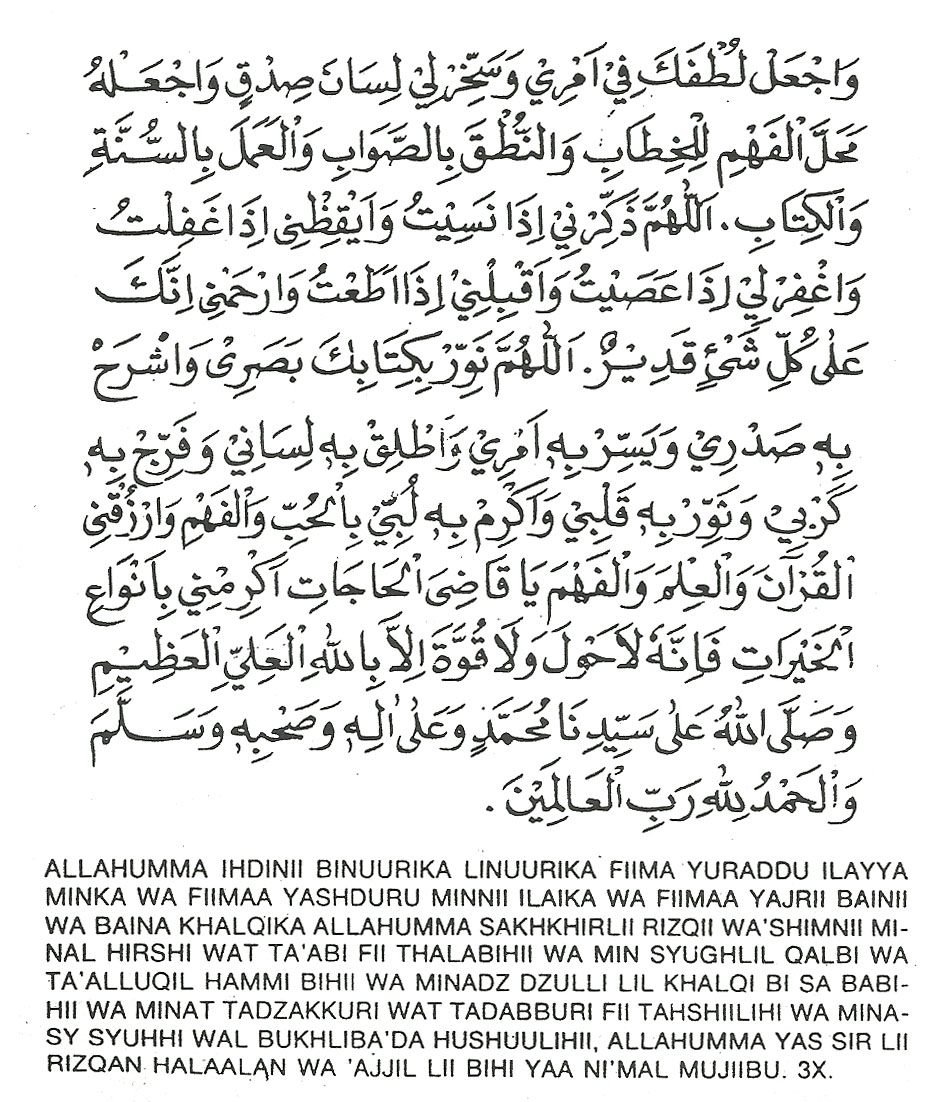 وَاجْعَلْ لُطْفَكَ فِيْ اَمْرِيْ وَسَخِّرْ لِيْ لِسَانَ صِدْقٍ وَاجْعَلْهُ
مَحَلَّ الْفَهْمِ لِلْخِطَابِ وَالنُّطْقَ بِالصَّوَابِ وَالْعَمَلَ بِالسُّنَّةِ
وَالْكِتَابِ. اَللّٰهُمَّ ذَكِّرْنِيْ اِذَا نَسِيْتُ وَاَيْقِظْنِى اِذَا غَفِلْتُ
وَاغْفِرْ لِيْ اِذَا عَصَيْتُ وَاقْبِلْنِيْ اِذَا اَطَعْتُ وَارْحَمْنِى اِنَّكَ
عَلٰى كُلِّ شَىْءٍ قَدِيْرٌ. اَللّٰهُمَّ نَوِّرْ بِكِتَابِكَ بَصَرِىْ وَاشْرَحْ
بِهٖ صَدْرِيْ وَيَسِّرْ بِهٖ اَمْرِيْ وَاَطْلِقْ بِهٖ لِسَانِيْ وَفَرِّجْ بِهٖ
كَرْبِيْ وَنَوِّرْ بِهٖ قَلْبِيْ وَاَكْرِمْ بِهٖ لُبِّيْ بِالْحُبِّ وَالْفَهْمِ وَارْزُقْنِى
الْقُرْآنَ وَالْعِلْمَ وَالْفَهْمَ يَا قَاضِىَ الْحَاجَاتِ اَكْرِمْنِيْ بِاَنْوَاعِ
الْخَيْرَاتِ فَاِنَّهُ لَاحَوْلَ وَلَا قُوَّةَ اِلَّا بِاللّٰهِ الْعَلِيِّ الْعَظِيْمِ
وَصَلَّى اللّٰهُ عَلٰى سَيِّدِنَا مُحَمَّدٍ وَعَلٰى اٰلِهٖ وَصَحْبِهٖ وَسَلَّمَ
وَالْحَمْدُ لِلّٰهِ رَبِّ الْعَالَمِيْنَ.
ALLAHUMMA IHDINII BINUURIKA LINUURIKA FIIMA YURADDU ILAYYA
MINKA WA FIIMAA YASHDURU MINNII ILAIKA WA FIIMAA YAJRII BAINII
WA BAINA KHALQIKA ALLAHUMMA SAKHKHIRLII RIZQII WA'SHIMNII MI-
NAL HIRSHI WAT TA'ABI FII THALABIHII WA MIN SYUGHLIL QALBI WA
TA'ALLUQIL HAMMI BIHII WA MINADZ DZULLI LIL KHALQI BI SA BABI-
HII WA MINAT TADZAKKURI WAT TADABBURI FII TAHSHIILIHI WA MINA-
SY SYUHHI WAL BUKHLIBA'DA HUSHUULIHII, ALLAHUMMA YAS SIR LII
RIZQAN HALAALAN WA 'AJJIL LII BIHI YAA NI'MAL MUJIIBU. 3X.